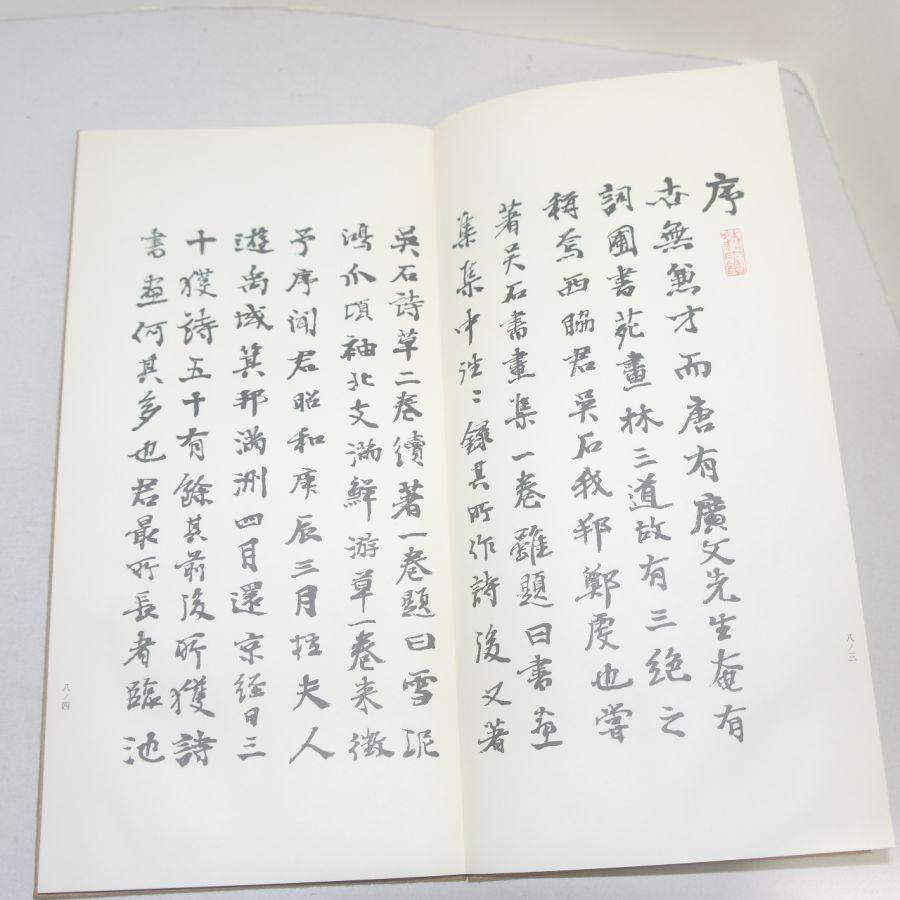 序
古無兼才而唐有廣文先生奄有
詞圃書苑畫林三道故有三絶之
稱焉西脇君吴石我邦鄭虔也嘗
著吴石書畫集一卷雖題曰書畫
集集中往〻錄其所作詩後又著
八ノ三
吴石詩草二卷續著一卷題曰雪泥
鴻爪頃袖北支満鮮游草一卷来徴
予序聞君昭和庚辰三月拉夫人
遊禹域箕邦満洲四月還京経日三
十獲詩五十有餘其前後所獲詩
書畫何其多也君最所長者臨池
八ノ四